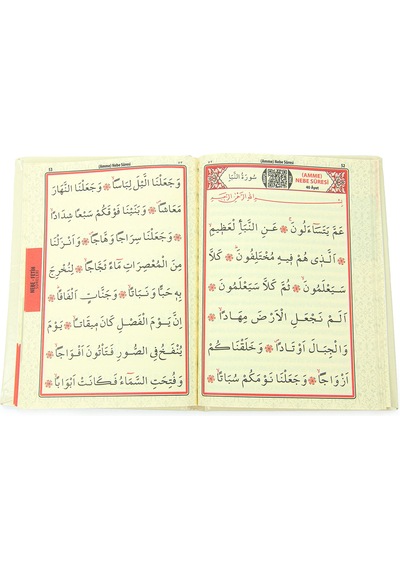 (Amme) Nebe Sûresi 52
(AMME)
NEBE SÛRESİ
40 Âyet
سُورَةُ النَّبَأِ
عَمَّ يَتَسَٓاءَلُونَۚ عَنِ النَّبَأِ الْعَظ۪يمِۙ
اَلَّذ۪ي هُمْ ف۪يهِ مُخْتَلِفُونَۜ كَلَّا
سَيَعْلَمُونَۙ ثُمَّ كَلَّا سَيَعْلَمُونَ
اَلَمْ نَجْعَلِ الْاَرْضَ مِهَادًاۙ
وَالْجِبَالَ اَوْتَادًاۖ وَخَلَقْنَاكُمْ
اَزْوَاجًاۙ وَجَعَلْنَا نَوْمَكُمْ سُبَاتًاۙ
53 (Amme) Nebe Sûresi
وَجَعَلْنَا الَّيْلَ لِبَاسًاۙ وَجَعَلْنَا النَّهَارَ
مَعَاشًاۖ وَبَنَيْنَا فَوْقَكُمْ سَبْعًا شِدَادًاۙ
وَجَعَلْنَا سِرَاجًا وَهَّاجًاۖ وَاَنْزَلْنَا
مِنَ الْمُعْصِرَاتِ مَٓاءً ثَجَّاجًاۙ لِنُخْرِجَ
بِه۪ حَبًّا وَنَبَاتًاۙ وَجَنَّاتٍ اَلْفَافًاۜ
اِنَّ يَوْمَ الْفَصْلِ كَانَ م۪يقَاتًاۙ يَوْمَ
يُنْفَخُ فِي الصُّورِ فَتَأْتُونَ اَفْوَاجًاۙ
وَفُتِحَتِ السَّمَٓاءُ فَكَانَتْ اَبْوَابًاۙ
NEBE - FETİH